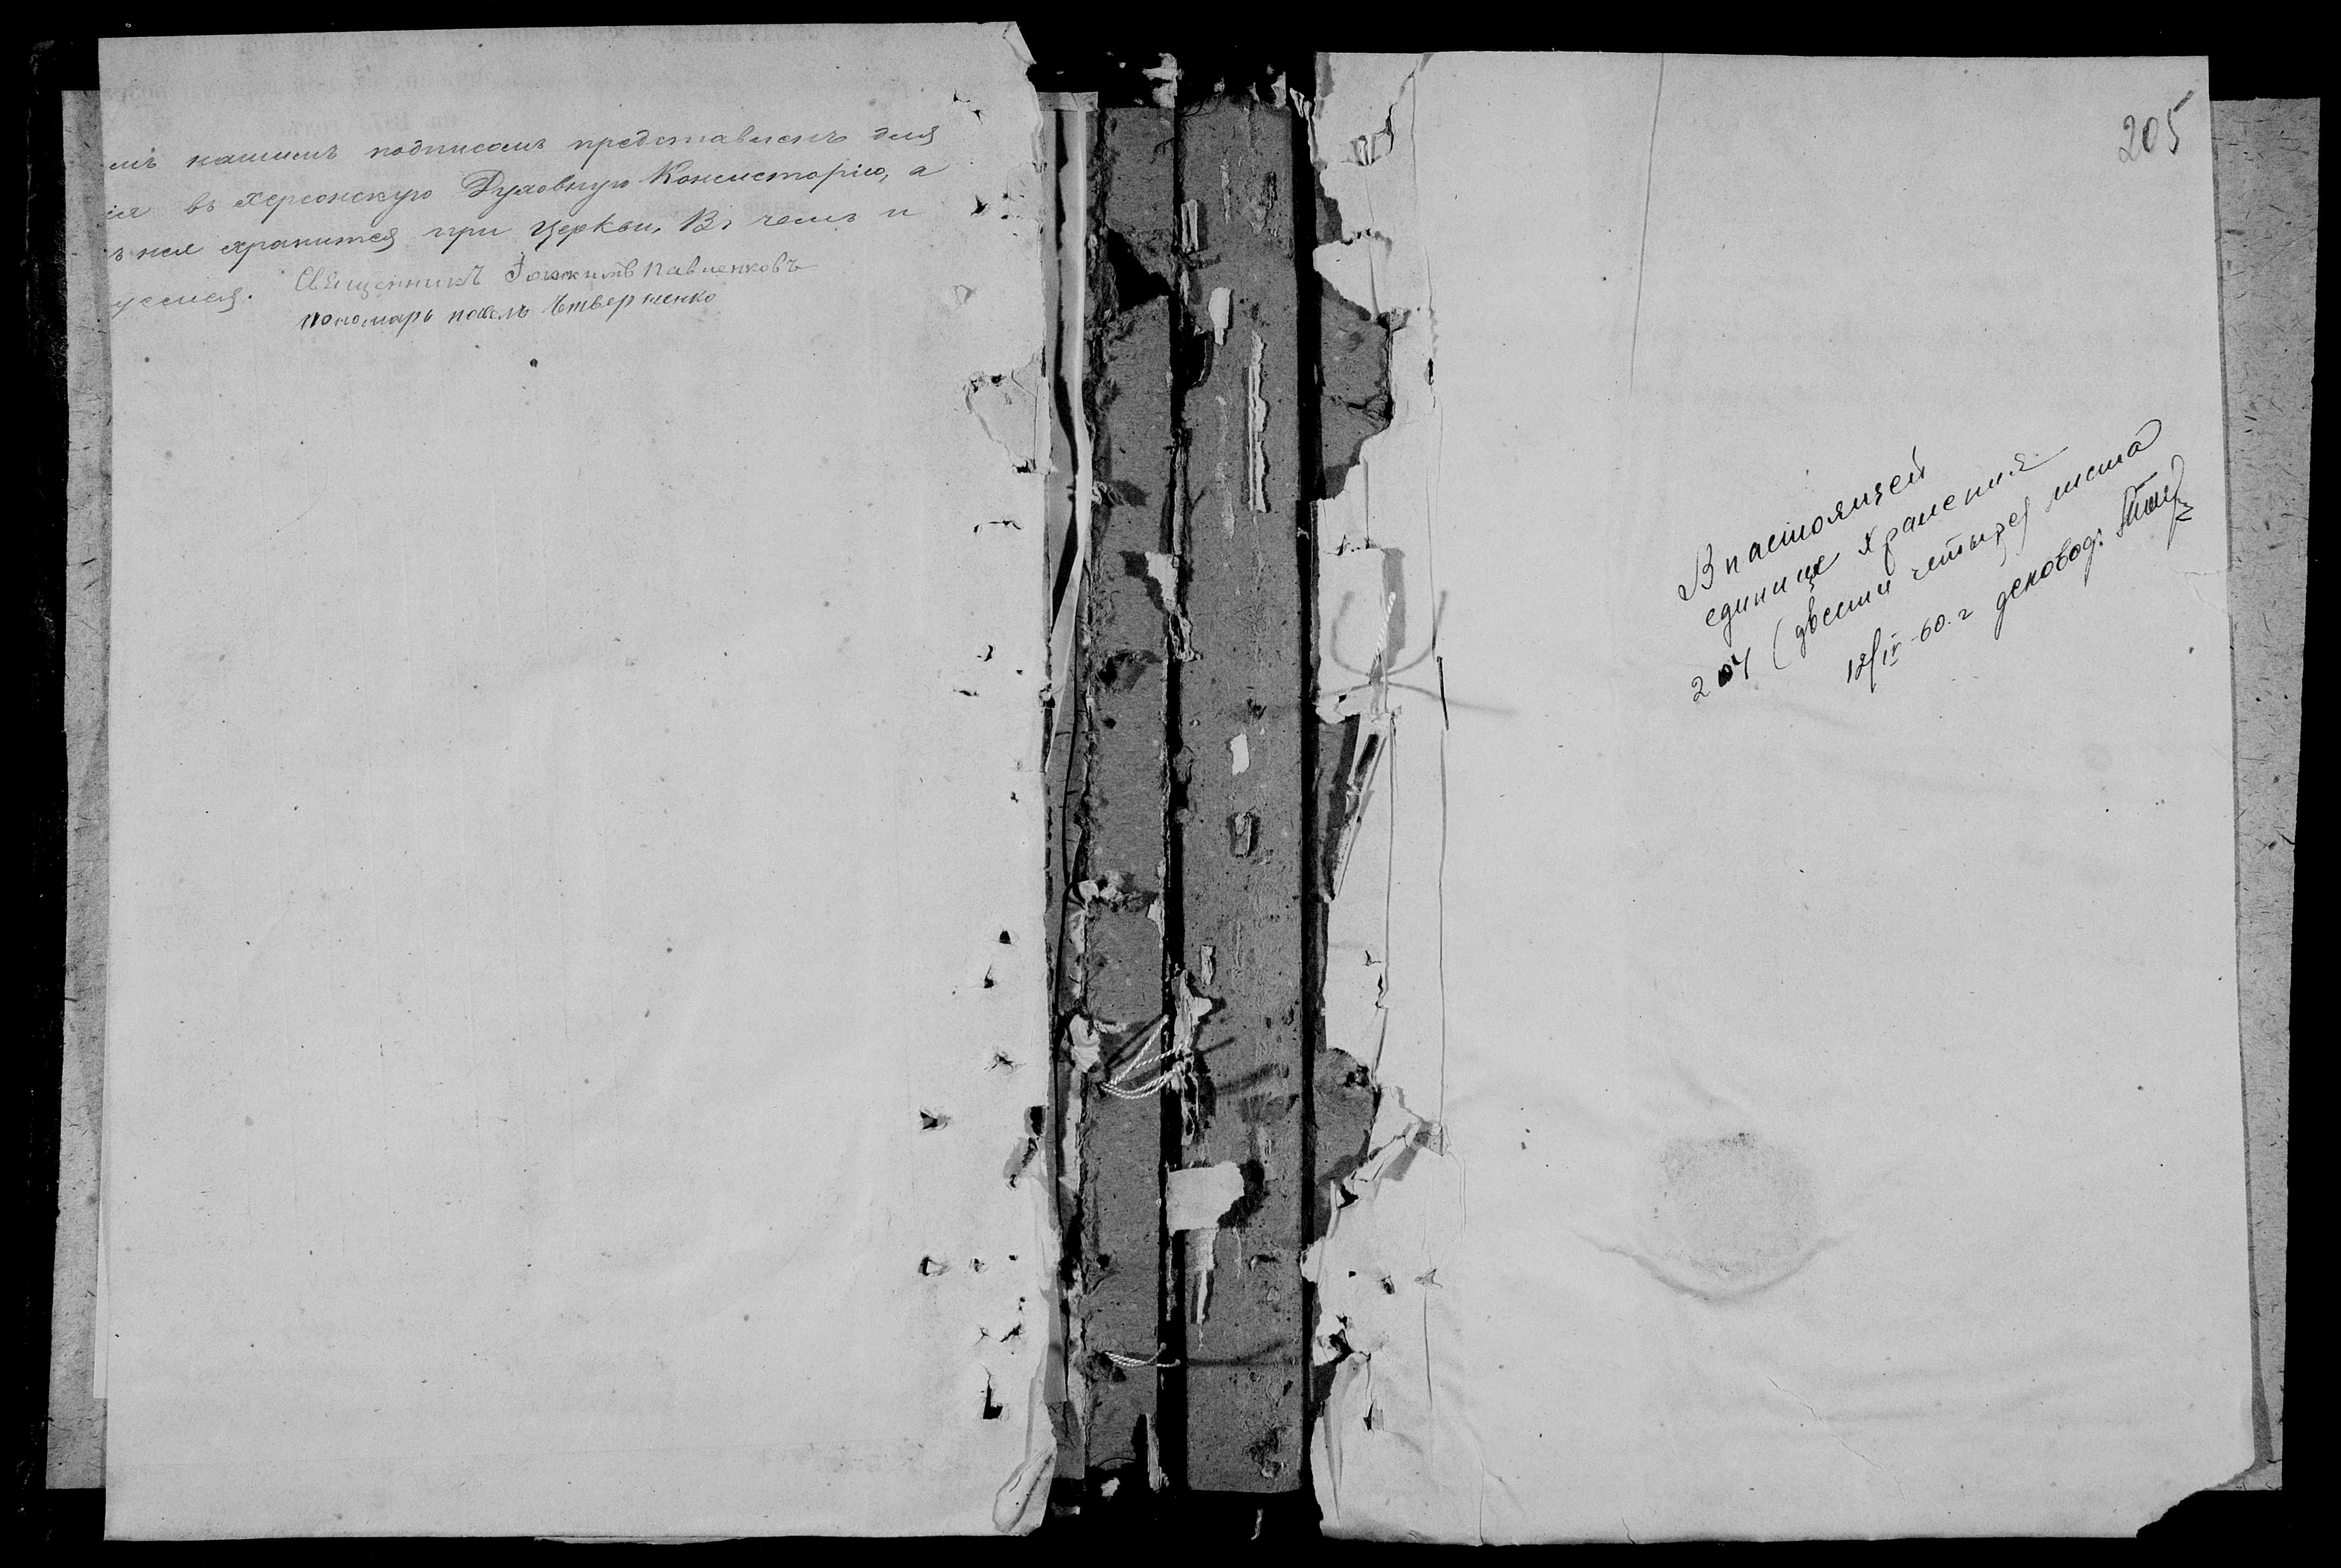 емъ нашимъ подписомъ представленъ для
ія въ Херсонскую Духовную Консисторію, а
ъ нея хранится при Церкви, Въ чемъ и
уемся.
Священникъ Іоакимъ Павленковъ
пономарь павелъ
205
В настоящей
единице хранения
204 (двести четыре) листа
12/IV-60. г деловод: